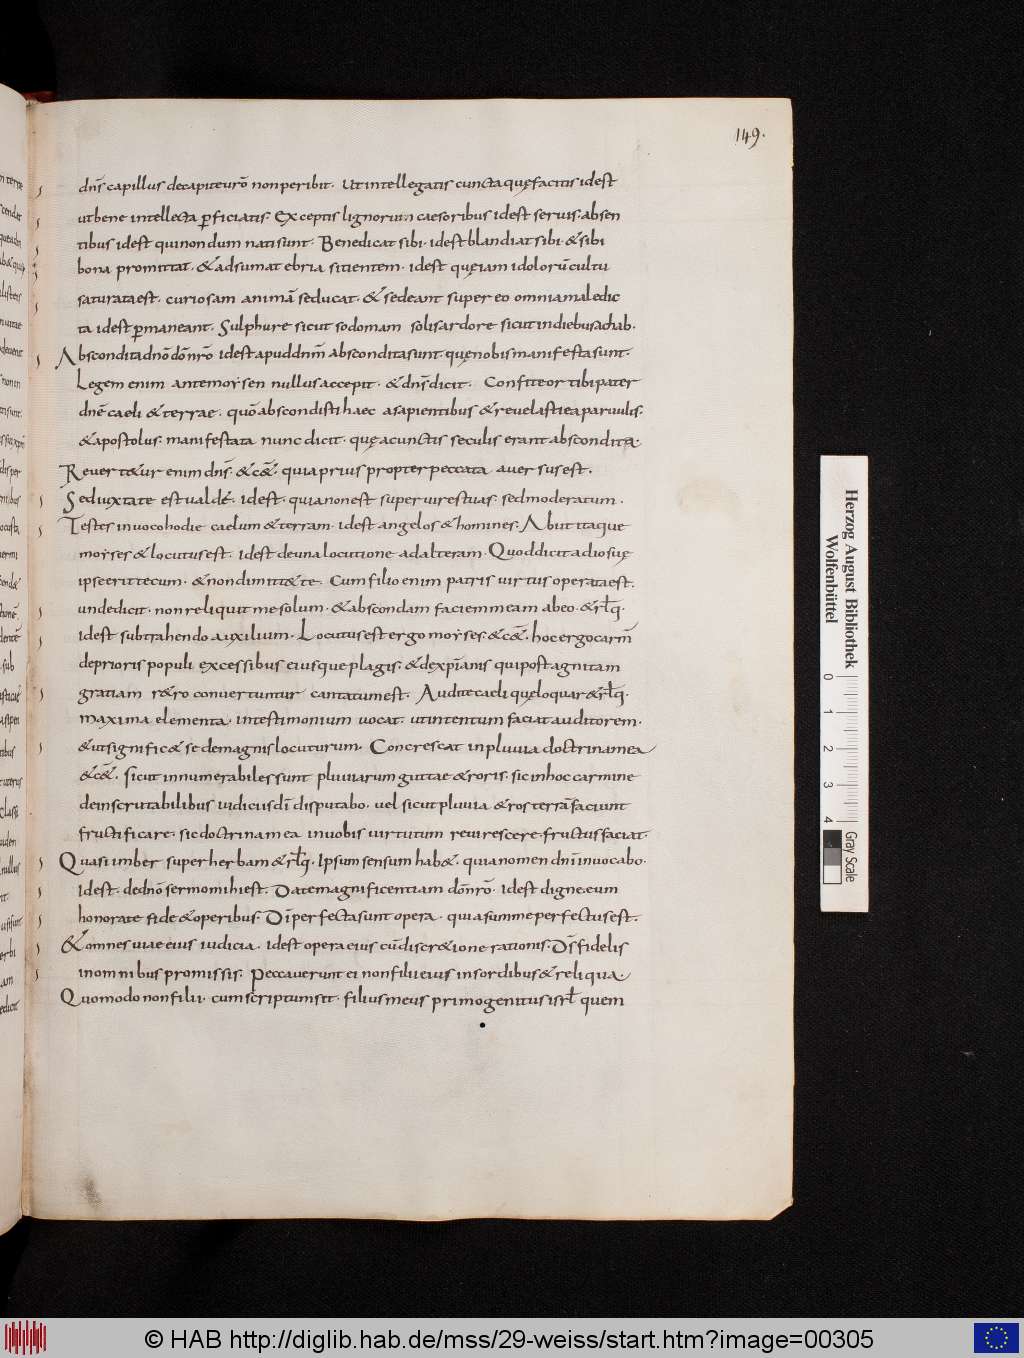 149.
dn̄s capillus decapite ur̄o non peribit. Ut intellegatis cuncta quę facitis id est
ut bene intellecta ꝑficiatis. Exceptis lignorum caesoribus id est seruis. absen
tibus id est qui non dum nati sunt. Benedicat sibi. id est blandiat sibi. & sibi
bona promittat. & adsumat ebria sitientem. id est quę iam idolorū cultu
saturata est. curiosam animā seducat. & sedeant super eo omnia maledic
ta id est ꝑmaneant. Sulphure sicut sodomam solis ardore sicut in diebus achab.
Abscondita dn̄o dō nr̄o id est apud dn̄m abscondita sunt. quę nobis manifesta sunt.
Legem enim ante moysen nullus accepit. & dn̄s dicit. Confiteor tibi pater
dn̄e caeli & terrae. quō abscondisti haec a sapientibus & reuelasti ea paruulis.
& apostolus. manifestata nunc dicit. quę a cunctis seculis erant abscondita.
Reuertetur enim dn̄s. & cēt. quia prius propter peccata auersus est.
Sed iuxta te est ualde. id est. quia non est super uires tuas. sed moderatum.
Testes inuoco hodie caelum & terram. id est angelos & homines. Abiit itaque
moyses & locutus est. id est de una locutione ad alteram. Quod dicit ad iosuę
ipse erit tecum. & non dimitt& te. Cum filio enim patris uirtus operata est.
unde dicit. non reliquit me solum. & abscondam faciem meam ab eo. & rl̄q.
id est subtrahendo auxilium. Locutus est ergo moyses. & cēt. hoc ergo carm̄
de prioris populi excessibus eiusque plagis. & de xp̄ianis qui post agnitam
gratiam r&ro conuertuntur cantatum est. Audite caeli quę loquar & rl̄q.
maxima elementa. in testimonium uocat. ut intentum faciat auditorem.
& ut signific& se de magnis locuturum. Concrescat in pluuia doctrina mea
& cēt. sicut innumerabiles sunt pluuiarum guttae & roris. sic in hoc carmine
de inscrutabilibus iudiciis dī disputabo. uel sicut pluuia & ros terrā faciunt
fructificare. sic doctrina mea in uobis uirtutum reuirescere fructus faciat.
Quasi imber super herbam & rl̄q. Ipsum sensum hab&. quia nomen dn̄i inuocabo.
id est. de dn̄o sermo mihi est. Date magnificentiam dō nr̄o. id est digne eum
honorate fide & operibus. Dī perfecta sunt opera. quia summe perfectus est.
& omnes uiae eius iudicia. id est opera eius cū discr&ione rationis. Ds̄ fidelis
in omnibus promissis. Peccauerunt ei non filii eius in sordibus & reliqua.
Quomodo non filii. cum scriptum sit. filius meus primogenitus isrl̄ quem
Herzog August Bibliothek
Wolfenbüttel
0 1 2 3 4
Gray Scale
© HAB http://diglib.hab.de/mss/29-weiss/start.htm?image=00305